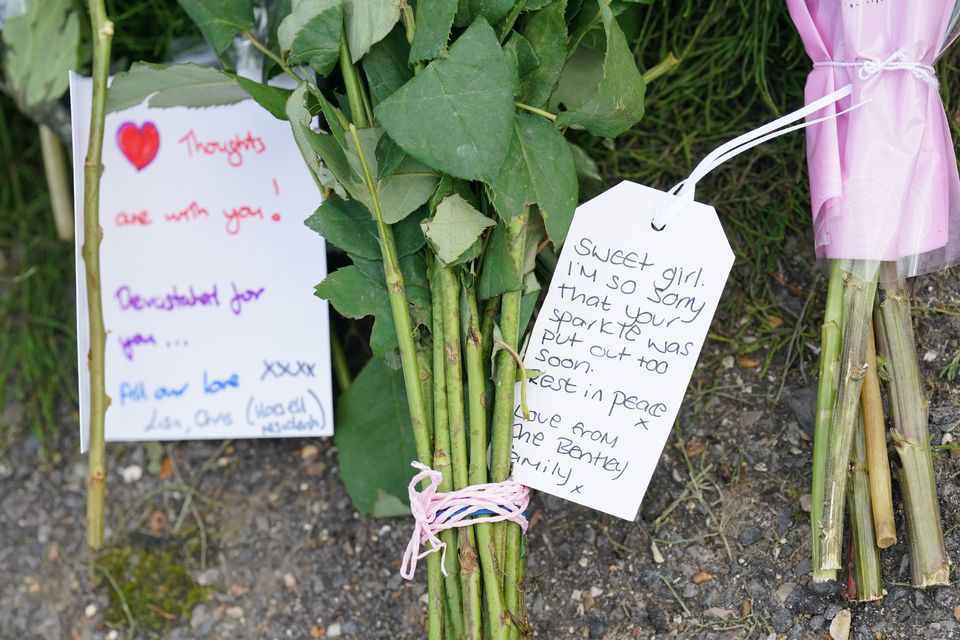 Thoughts
are with you!
Devastated for
you ...
All our love xxxx
Lisa, Chris (Horsell
resident)
Sweet girl.
I'm so sorry
that your
sparkle was
put out too
soon.
Rest in peace
x
Love from
The Bentley
family x